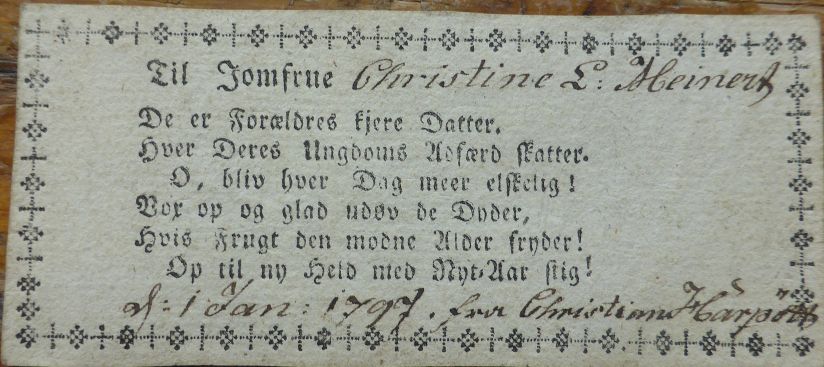 Til Jomfrue Christine L: Meinert
De er Forældres kjere Datter.
Hver Deres Ungdoms Adfærd skatter.
O, bliv hver Dag meer elskelig!
Vox op og glad udøv de Dyder,
Hvis Frugt den modne Alder fryder!
Op til ny Held med Nyt-Aar stig!
d: 1 Jan: 1797. fra Christian